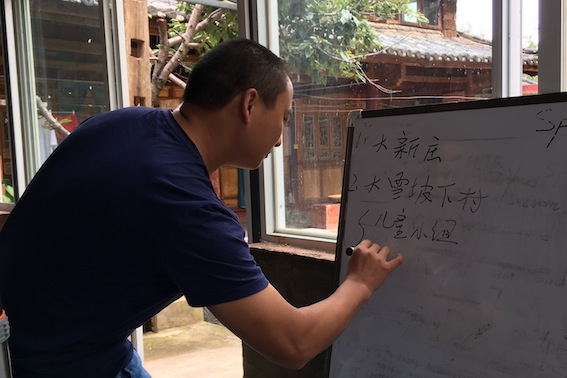 1. 大新庄
Sp
2. 大雪坡下村
儿童小组